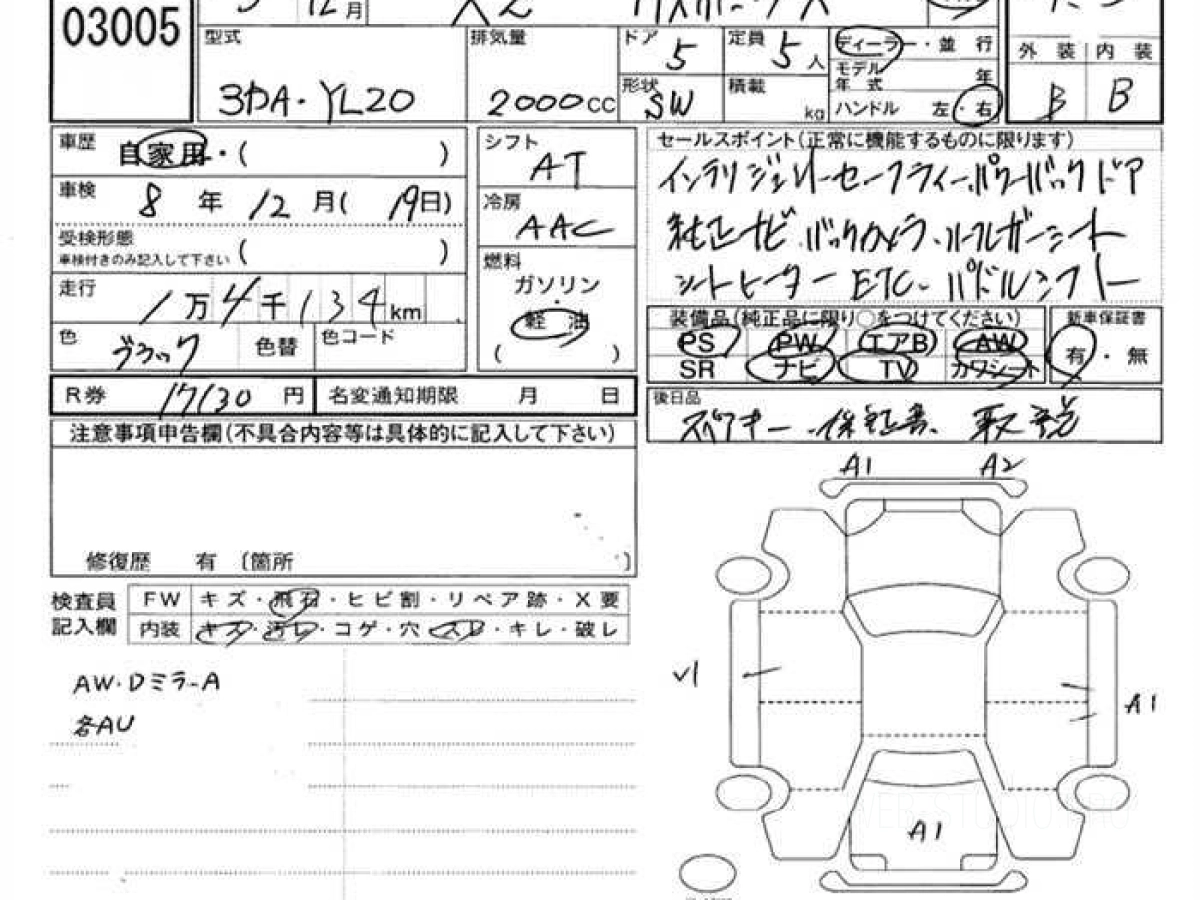 03005
12月
型式
3DA・YL20
排気量
2000cc
ドア
5
定員
5人
形状
SW
積載
kg
ディーラー・並行
モデル年式
年
ハンドル 左・右
外装 内装
B B
車歴
自家用・( )
車検
8年12月(19日)
受検形態
車検付きのみ記入して下さい ( )
走行
1万4千134km
色
ブラック
色替
色コード
シフト
AT
冷房
AAC
燃料
ガソリン
・
軽油
( )
セールスポイント(正常に機能するものに限ります)
インテリジェントセーフティ・パワーバックドア
純正ナビ・バックカメラ・ハーフレザーシート
シートヒーター ETC・パドルシフト
装備品(純正品に限り○をつけてください)
PS PW エアB AW
SR ナビ TV カワシート
新車保証書
有・無
R券 17130円
名変通知期限 月 日
後日品
スペアキー・保証書、取説
注意事項申告欄(不具合内容等は具体的に記入して下さい)
修復歴 有 〔箇所 〕
検査員
記入欄
FW キズ・飛石・ヒビ割・リペア跡・X要
内装 キズ・汚レ・コゲ・穴・スレ・キレ・破レ
AW・DミラーA
各AU
A1 A2
A1
A1